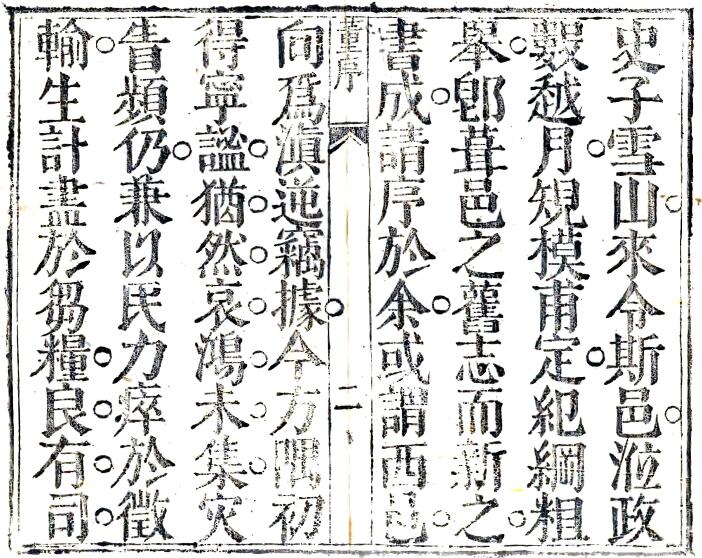 史子雪山來令斯邑涖政
數越月規模甫定紀綱粗
舉卽葺邑之舊志而新之
書成請序於余或謂西邑
董序
二
向爲滇逆竊據今方隅初
得寧謐猶然哀鴻未集灾
眚頻仍兼以民力瘁於徵
輸生計盡於芻糧良有司